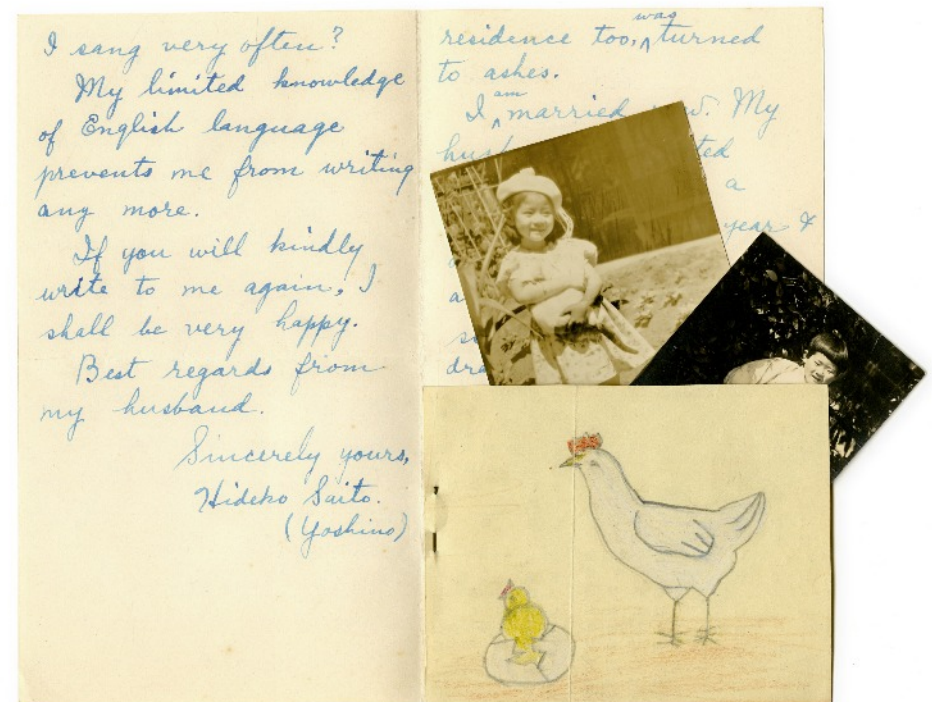 I sang very often?
My limited knowledge
of English language
prevents me from writing
any more.
If you will kindly
write to me again, I
shall be very happy.
Best regards from
my husband.
Sincerely yours,
Hideko Saito.
(Yoshino)
residence too, was turned
to ashes.
I am married now. My
a
year &